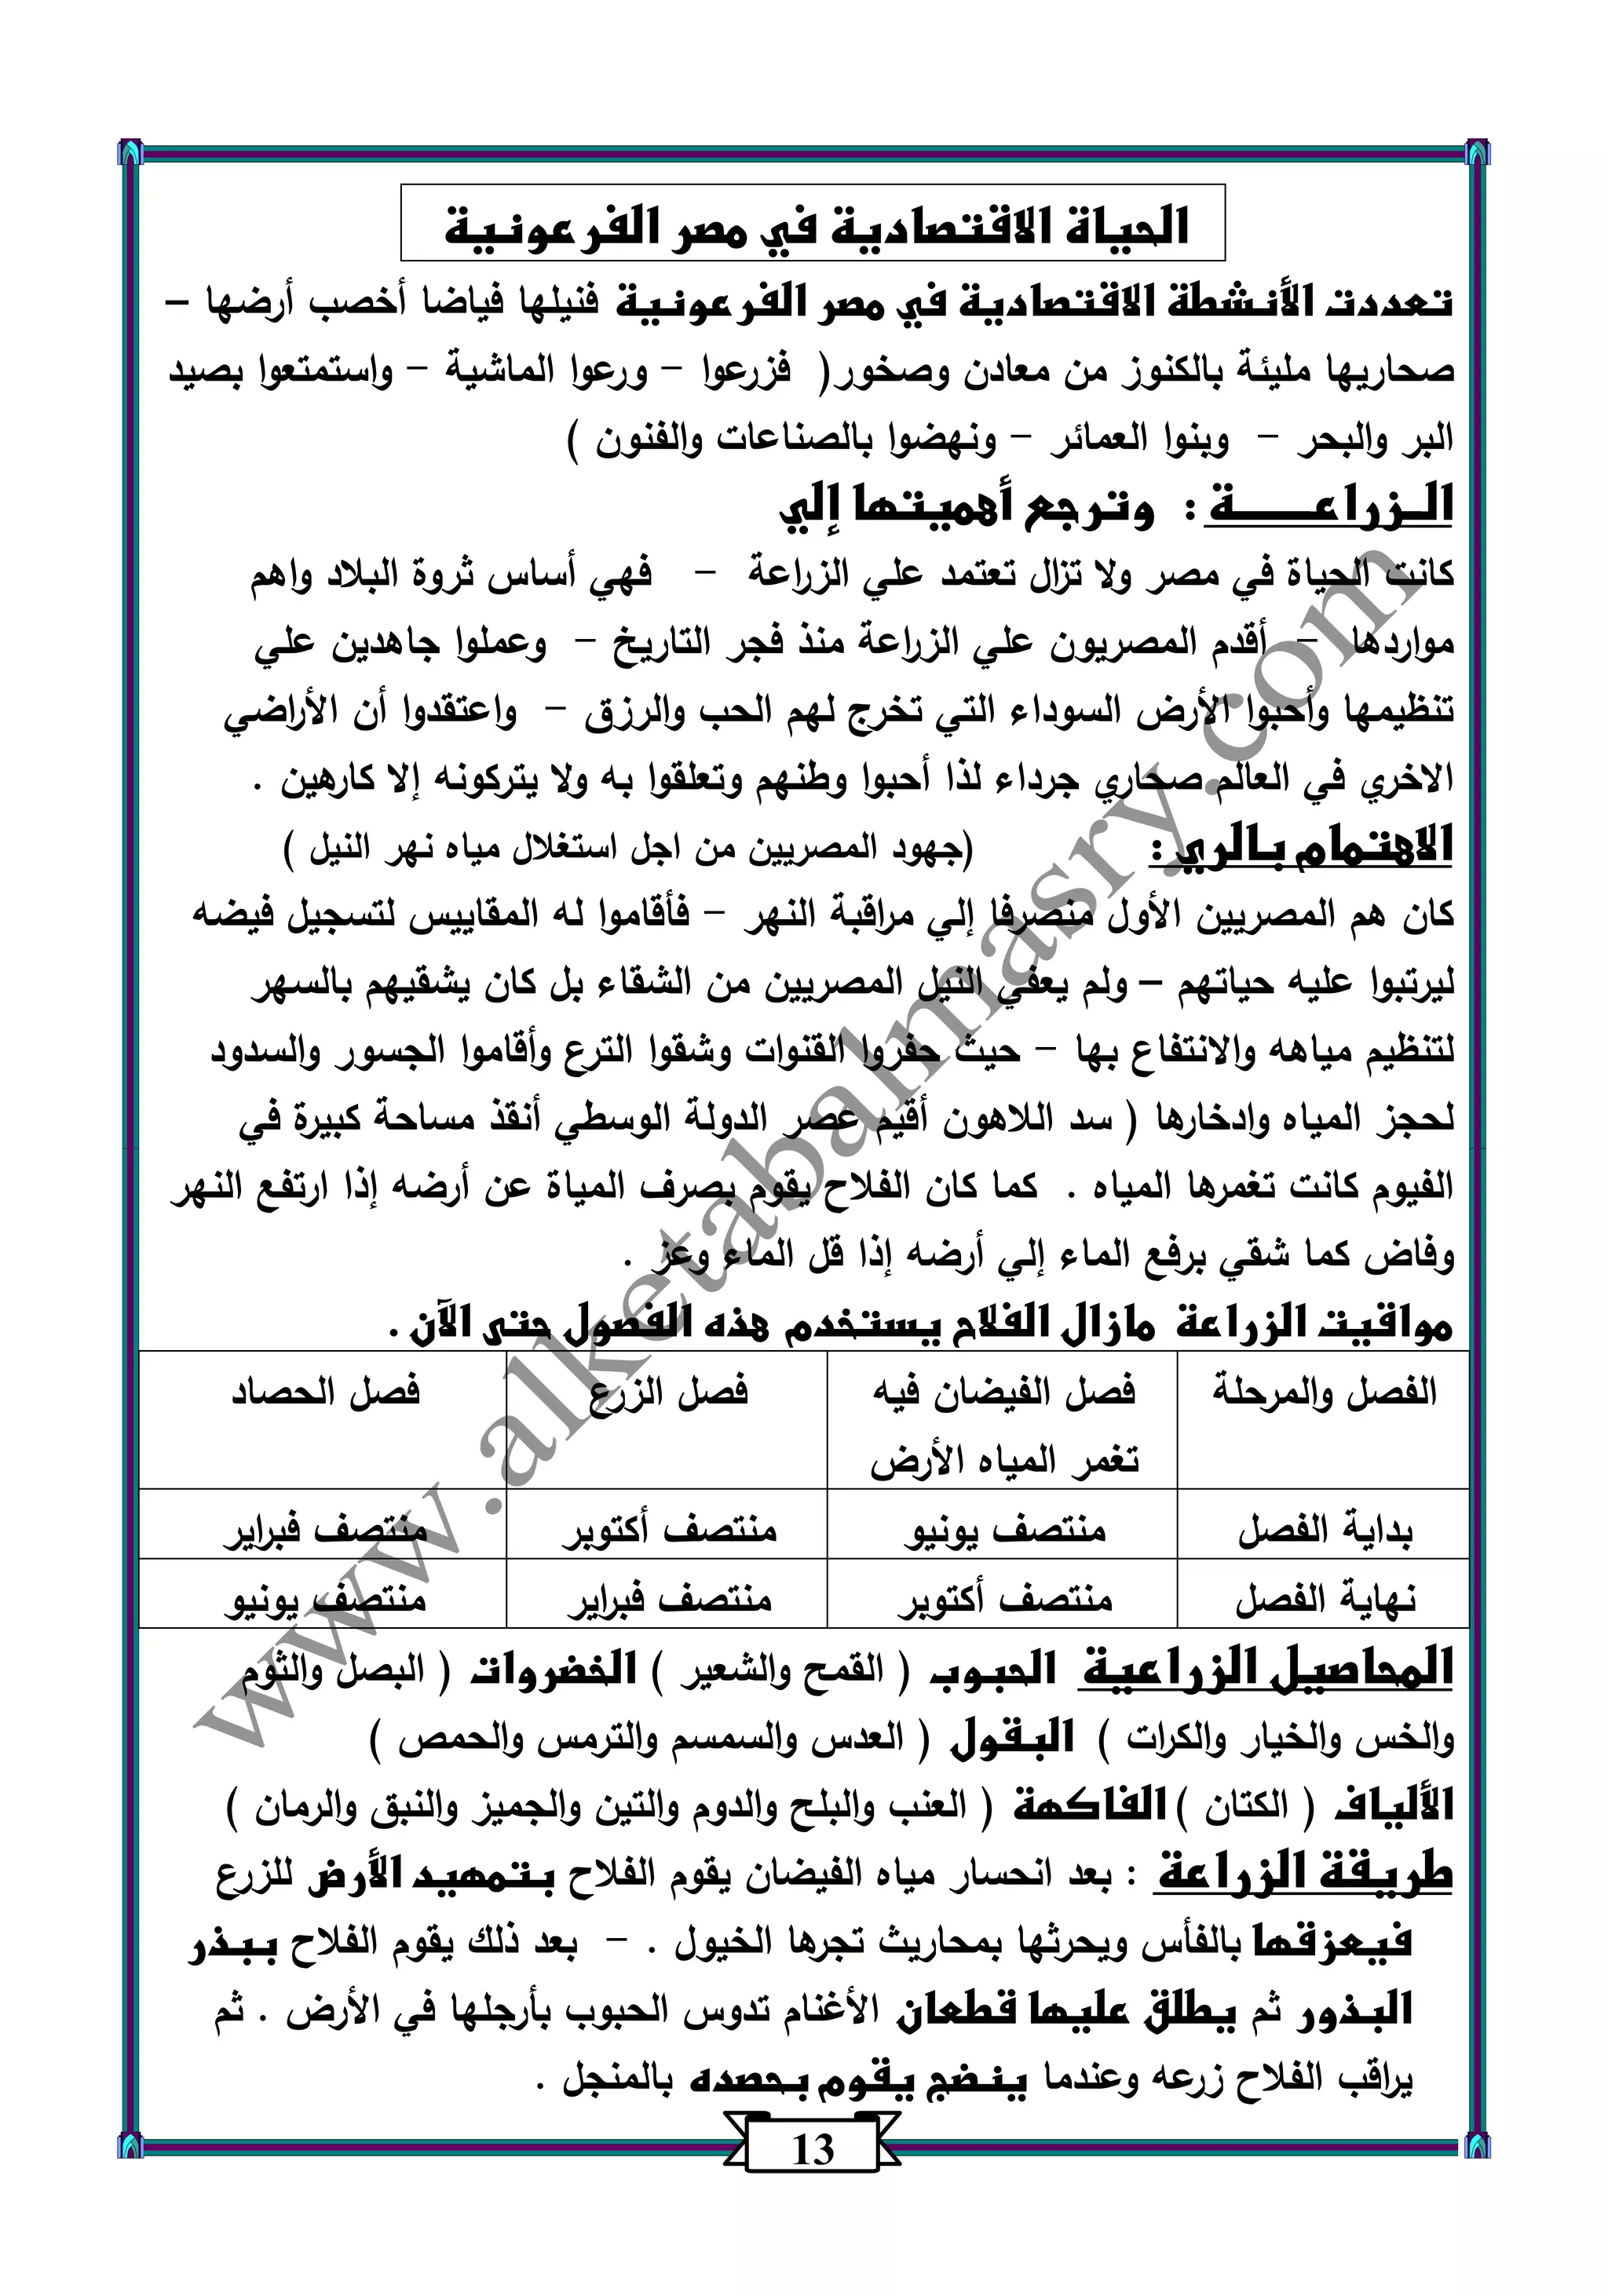 الحياة الاقتصادية في مصر الفرعونية
تعددت الأنشطة الاقتصادية في مصر الفرعونية فنيلها فياضا أخصب أرضها –
صحاريها مليئة بالكنوز من معادن وصخور( فزرعوا - ورعوا الماشية - واستمتعوا بصيد
البر والبحر - وبنوا العمائر - ونهضوا بالصناعات والفنون )
الـزراعــــــة : وترجع أهميتها إلي
كانت الحياة في مصر ولا تزال تعتمد علي الزراعة - فهي أساس ثروة البلاد واهم
مواردها - أقدم المصريون علي الزراعة منذ فجر التاريخ - وعملوا جاهدين علي
تنظيمها وأحبوا الأرض السوداء التي تخرج لهم الحب والرزق - واعتقدوا أن الأراضي
الاخري في العالم صحاري جرداء لذا أحبوا وطنهم وتعلقوا به ولا يتركونه إلا كارهين .
الاهتمام بالري : (جهود المصريين من اجل استغلال مياه نهر النيل )
كان هم المصريين الأول منصرفا إلي مراقبة النهر - فأقاموا له المقاييس لتسجيل فيضه
ليرتبوا عليه حياتهم – ولم يعفي النيل المصريين من الشقاء بل كان يشقيهم بالسهر
لتنظيم مياهه والانتفاع بها - حيث حفروا القنوات وشقوا الترع وأقاموا الجسور والسدود
لحجز المياه وادخارها ( سد اللاهون أقيم عصر الدولة الوسطي أنقذ مساحة كبيرة في
الفيوم كانت تغمرها المياه . كما كان الفلاح يقوم بصرف المياة عن أرضه إذا ارتفع النهر
وفاض كما شقي برفع الماء إلي أرضه إذا قل الماء وعز .
مواقيت الزراعة مازال الفلاح يستخدم هذه الفصول حتى الآن .
الفصل والمرحلة فصل الفيضان فيه فصل الزرع فصل الحصاد
تغمر المياه الأرض
بداية الفصل منتصف يونيو منتصف أكتوبر منتصف فبراير
نهاية الفصل منتصف أكتوبر منتصف فبراير منتصف يونيو
المحاصيل الزراعية الحبوب ( القمح والشعير ) الخضروات ( البصل والثوم
والخس والخيار والكرات ) البقول ( العدس والسمسم والترمس والحمص )
الألياف ( الكتان ) الفاكهة ( العنب والبلح والدوم والتين والجميز والنبق والرمان )
طريقة الزراعة : بعد انحسار مياه الفيضان يقوم الفلاح بتمهيد الأرض للزرع
فيعزقها بالفأس ويحرثها بمحاريث تجرها الخيول . - بعد ذلك يقوم الفلاح ببذر
البذور ثم يطلق عليها قطعان الأغنام تدوس الحبوب بأرجلها في الأرض . ثم
يراقب الفلاح زرعه وعندما ينضج يقوم بحصده بالمنجل .
13
www.alketabalmasry.com